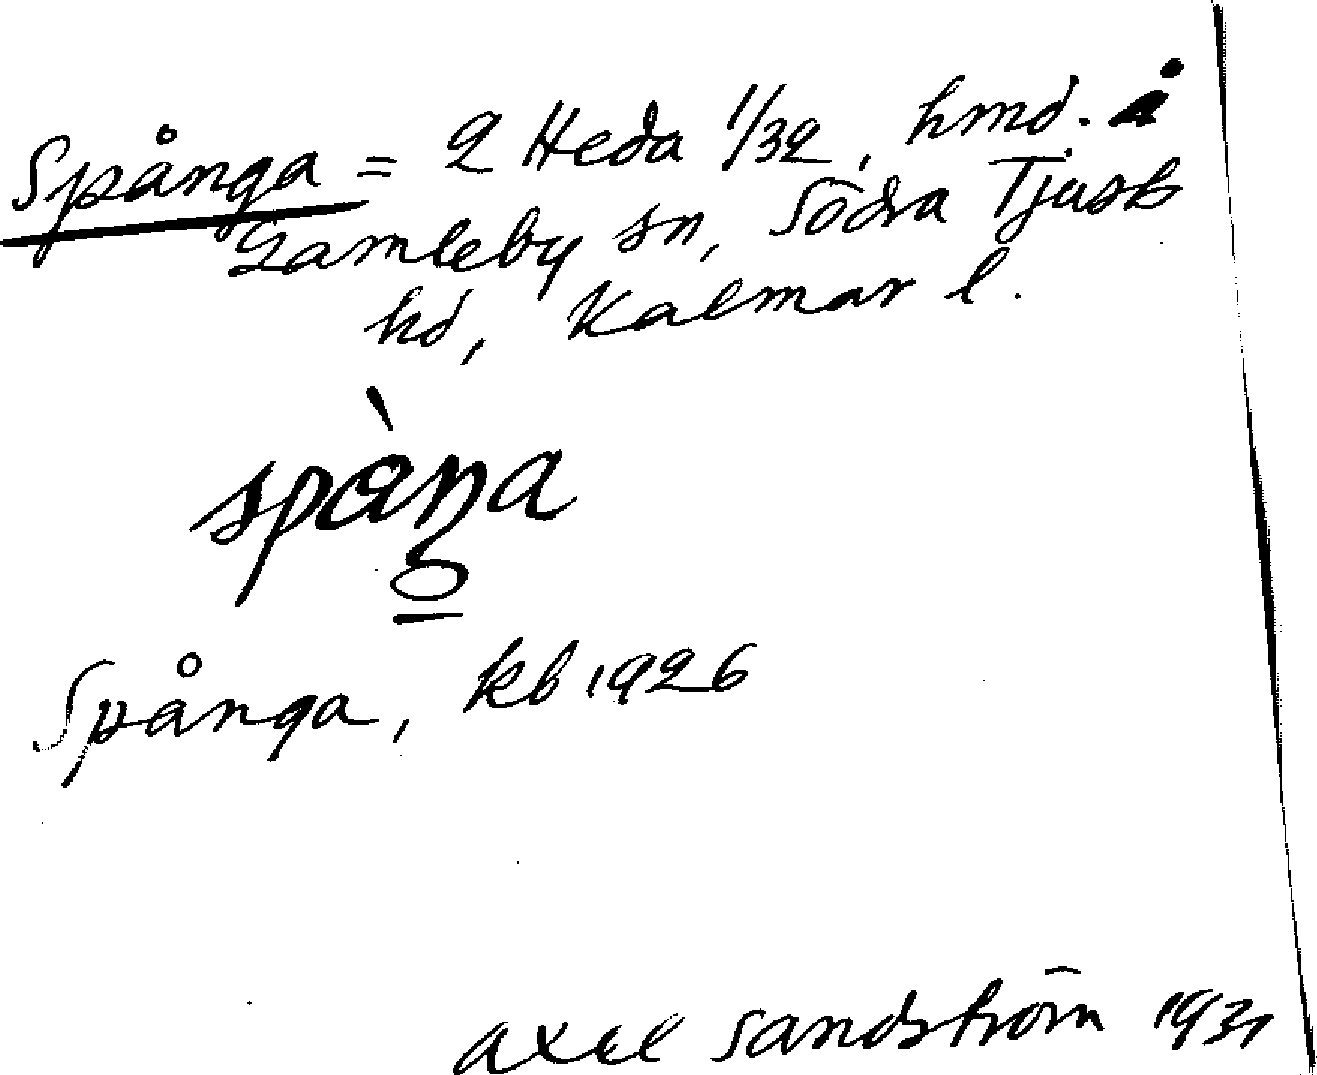 Spånga = 2 Heda 1/32, hmd. å
Gamleby sn, Södra Tjusts
hd, Kalmar l.
spàŋa
Spånga, kb 1926
Axel Sandström 1931